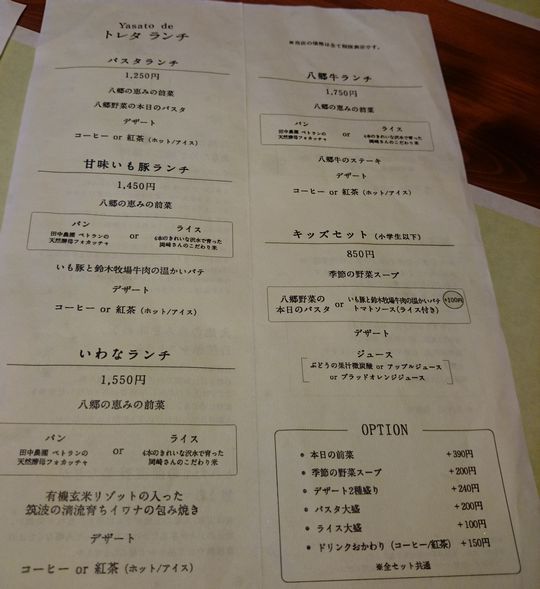 Yasato de
トレタ ランチ
パスタランチ
1,250円
八郷の恵みの前菜
八郷野菜の本日のパスタ
デザート
コーヒー or 紅茶 (ホット/アイス)
甘味いも豚ランチ
1,450円
八郷の恵みの前菜
パン
田中農園 ベトランの
天然酵母フォカッチャ
or
ライス
6本のきれいな沢水で育った
岡崎さんのこだわり米
いも豚と鈴木牧場牛肉の温かいパテ
デザート
コーヒー or 紅茶 (ホット/アイス)
いわなランチ
1,550円
八郷の恵みの前菜
パン
田中農園 ベトランの
天然酵母フォカッチャ
or
ライス
6本のきれいな沢水で育った
岡崎さんのこだわり米
有機玄米リゾットの入った
筑波の清流育ちイワナの包み焼き
デザート
コーヒー or 紅茶 (ホット/アイス)
※当店の価格は全て税抜表示です。
八郷牛ランチ
1,750円
八郷の恵みの前菜
パン
田中農園 ベトランの
天然酵母フォカッチャ
or
ライス
6本のきれいな沢水で育った
岡崎さんのこだわり米
八郷牛のステーキ
デザート
コーヒー or 紅茶 (ホット/アイス)
キッズセット (小学生以下)
850円
季節の野菜スープ
八郷野菜の
本日のパスタ
or
いも豚と鈴木牧場牛肉の温かいパテ
トマトソース(ライス付き)
+100円
デザート
ジュース
ぶどうの果汁微炭酸 or アップルジュース
or ブラッドオレンジジュース
OPTION
● 本日の前菜 +390円
● 季節の野菜スープ +200円
● デザート2種盛り +240円
● パスタ大盛 +200円
● ライス大盛 +100円
● ドリンクおかわり (コーヒー/紅茶) +150円
※全セット共通